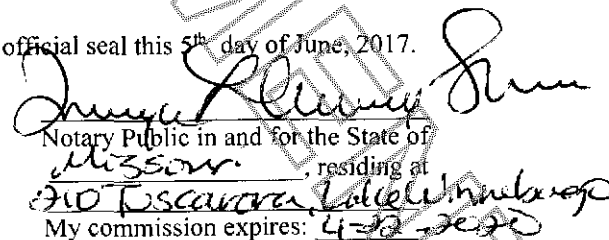 official seal this 5th day of June, 2017.
Notary Public in and for the State of
Missouri, residing at
210 Tuscarora, Lake Winnebago
My commission expires: 4-22-2020